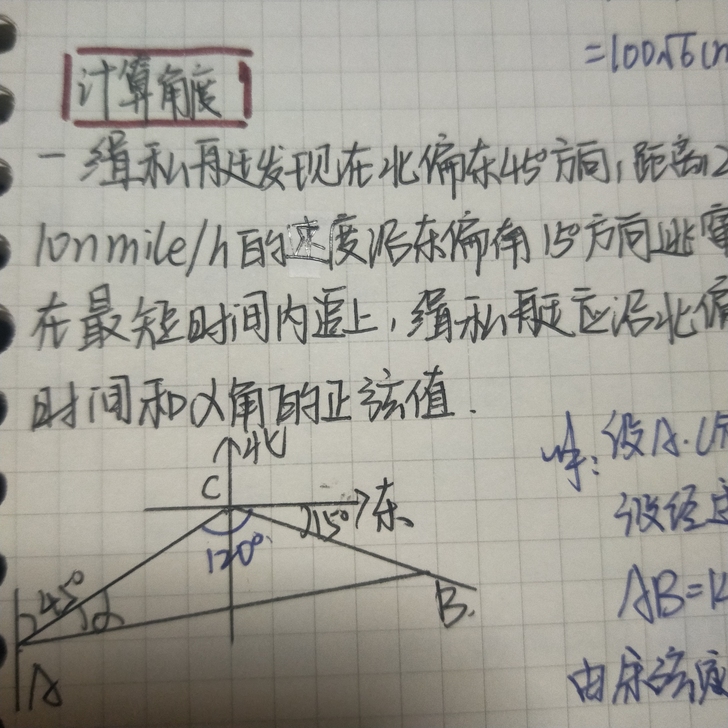 =100√6(m
计算角度
一缉私再廷发现在北偏东45°方向,距离12
10nmile/h的速度沿东偏南15°方向逃窜
在最短时间内追上,缉私艇应沿北偏
时间和α角的正弦值.
北
C
东
15°
120°
45°
α
A
B.
设A.C
设经
AB=1
由余弦定